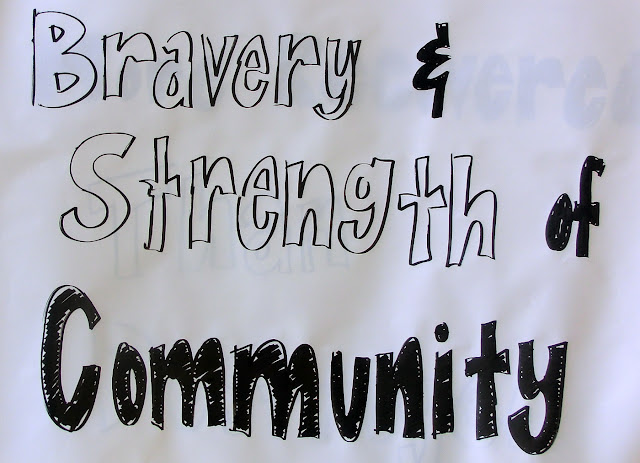 Bravery &
Strength of
Community